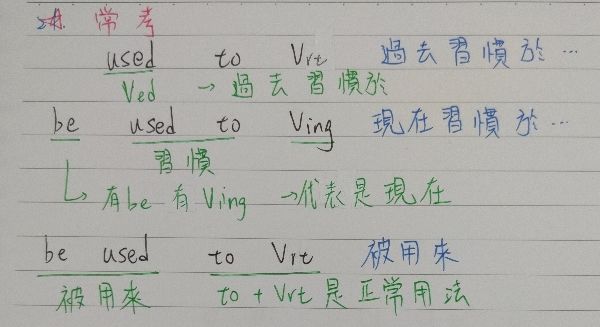 常考
used to Vrt 過去習慣於…
Ved → 過去習慣於
be used to Ving 現在習慣於…
習慣
↳ 有be有Ving →代表是現在
be used to Vrt 被用來
被用來 to + Vrt 是正常用法